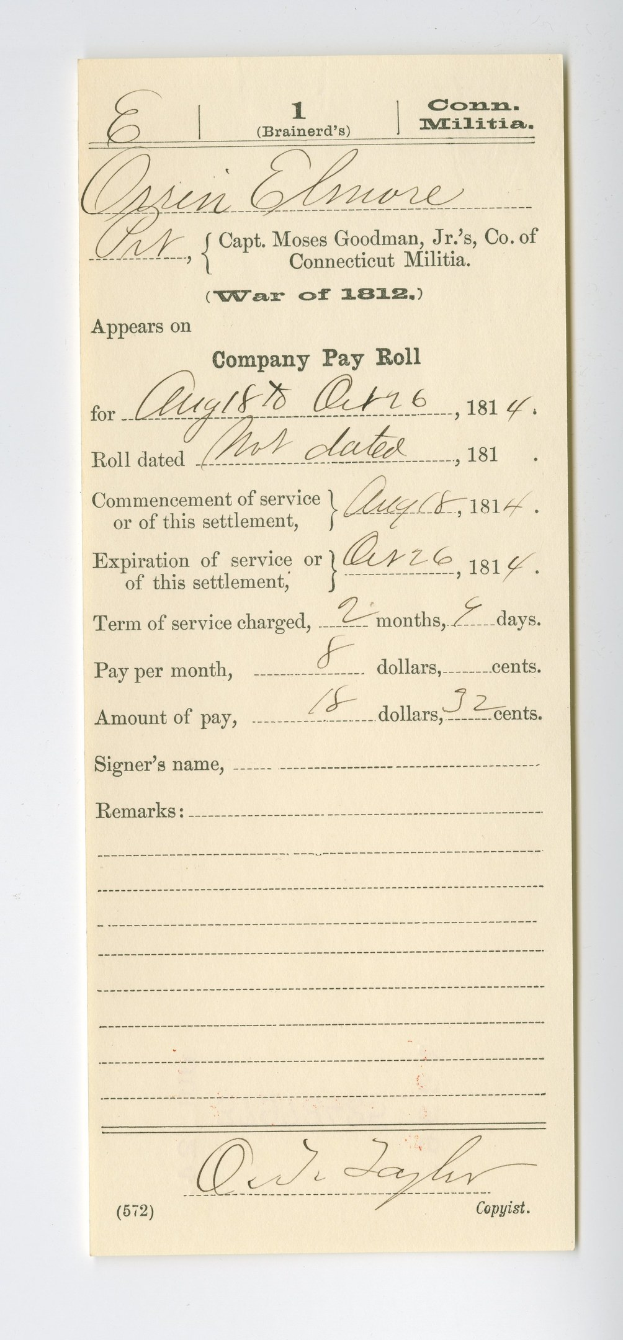 E | 1 | Conn.
(Brainerd's) Militia.
Orrin Elmore
Pvt, { Capt. Moses Goodman, Jr.'s, Co. of
Connecticut Militia.
(War of 1812.)
Appears on
Company Pay Roll
for Aug 18 to Oct 26, 1814.
Roll dated Not dated, 181 .
Commencement of service
or of this settlement, } Aug 18, 1814.
Expiration of service or
of this settlement, } Oct 26, 1814.
Term of service charged, 2 months, 9 days.
Pay per month, 8 dollars, cents.
Amount of pay, 18 dollars, 32 cents.
Signer's name,
Remarks:
O. T. Taylor
(572) Copyist.